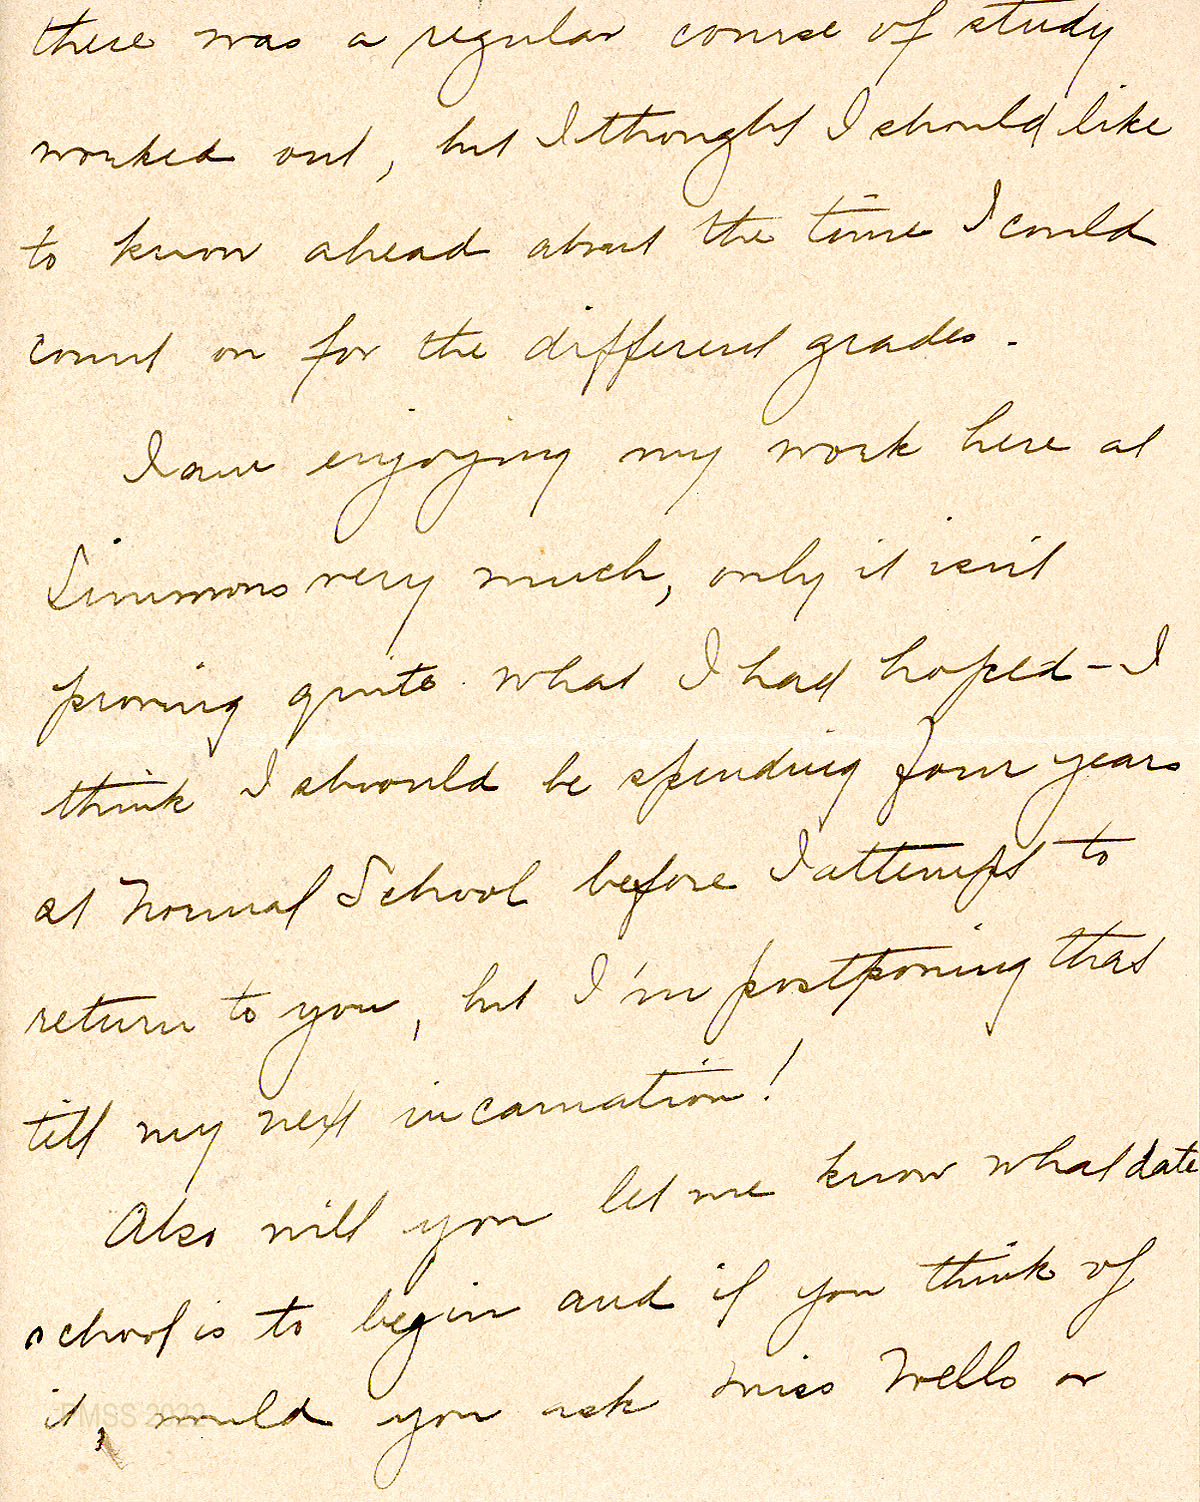 there was a regular course of study
worked out, but I thought I should like
to know ahead about the time I could
count on for the different grades.
I am enjoying my work here at
Simmons very much, only it isn't
proving quite what I had hoped - I
think I should be spending four years
at Normal School before I attempt to
return to you, but I'm postponing that
till my next incarnation!
Also will you let me know what date
school is to begin and if you think of
it, would you ask Miss Wells or
PMSS 2022